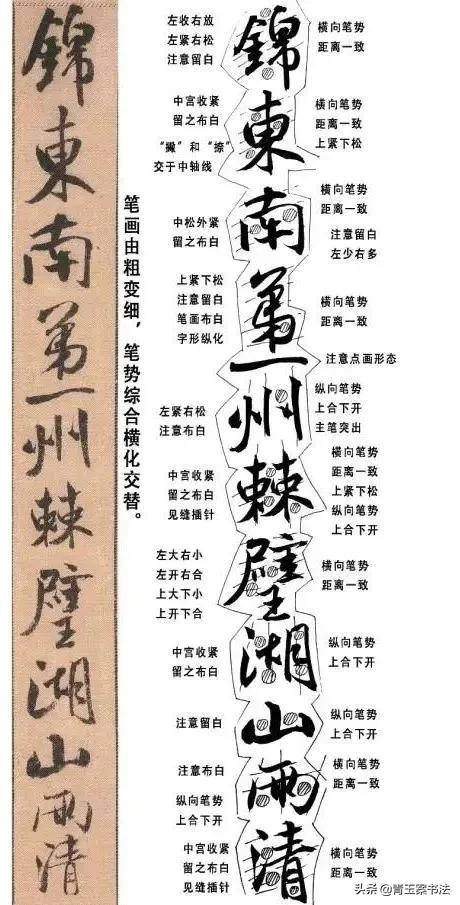 錦東南第一州棘璧湖山兩清
笔画由粗变细，笔势综合横化交替。
錦
東
南
第
一
州
棘
璧
湖
山
兩
清
左收右放
左紧右松
注意留白
横向笔势
距离一致
中宫收紧
留之布白
“撇”和“捺”
交于中轴线
横向笔势
距离一致
上紧下松
中松外紧
留之布白
横向笔势
距离一致
注意留白
左少右多
上紧下松
注意留白
笔画布白
字形纵化
横向笔势
距离一致
注意点画形态
左紧右松
注意布白
纵向笔势
上合下开
主笔突出
中宫收紧
留之布白
见缝插针
横向笔势
距离一致
上紧下松
纵向笔势
上合下开
左大右小
左开右合
上大下小
上开下合
横向笔势
距离一致
中宫收紧
留之布白
纵向笔势
上合下开
注意留白
纵向笔势
上合下开
注意布白
纵向笔势
上合下开
横向笔势
距离一致
中宫收紧
留之布白
见缝插针
横向笔势
距离一致
头条 @青玉案书法